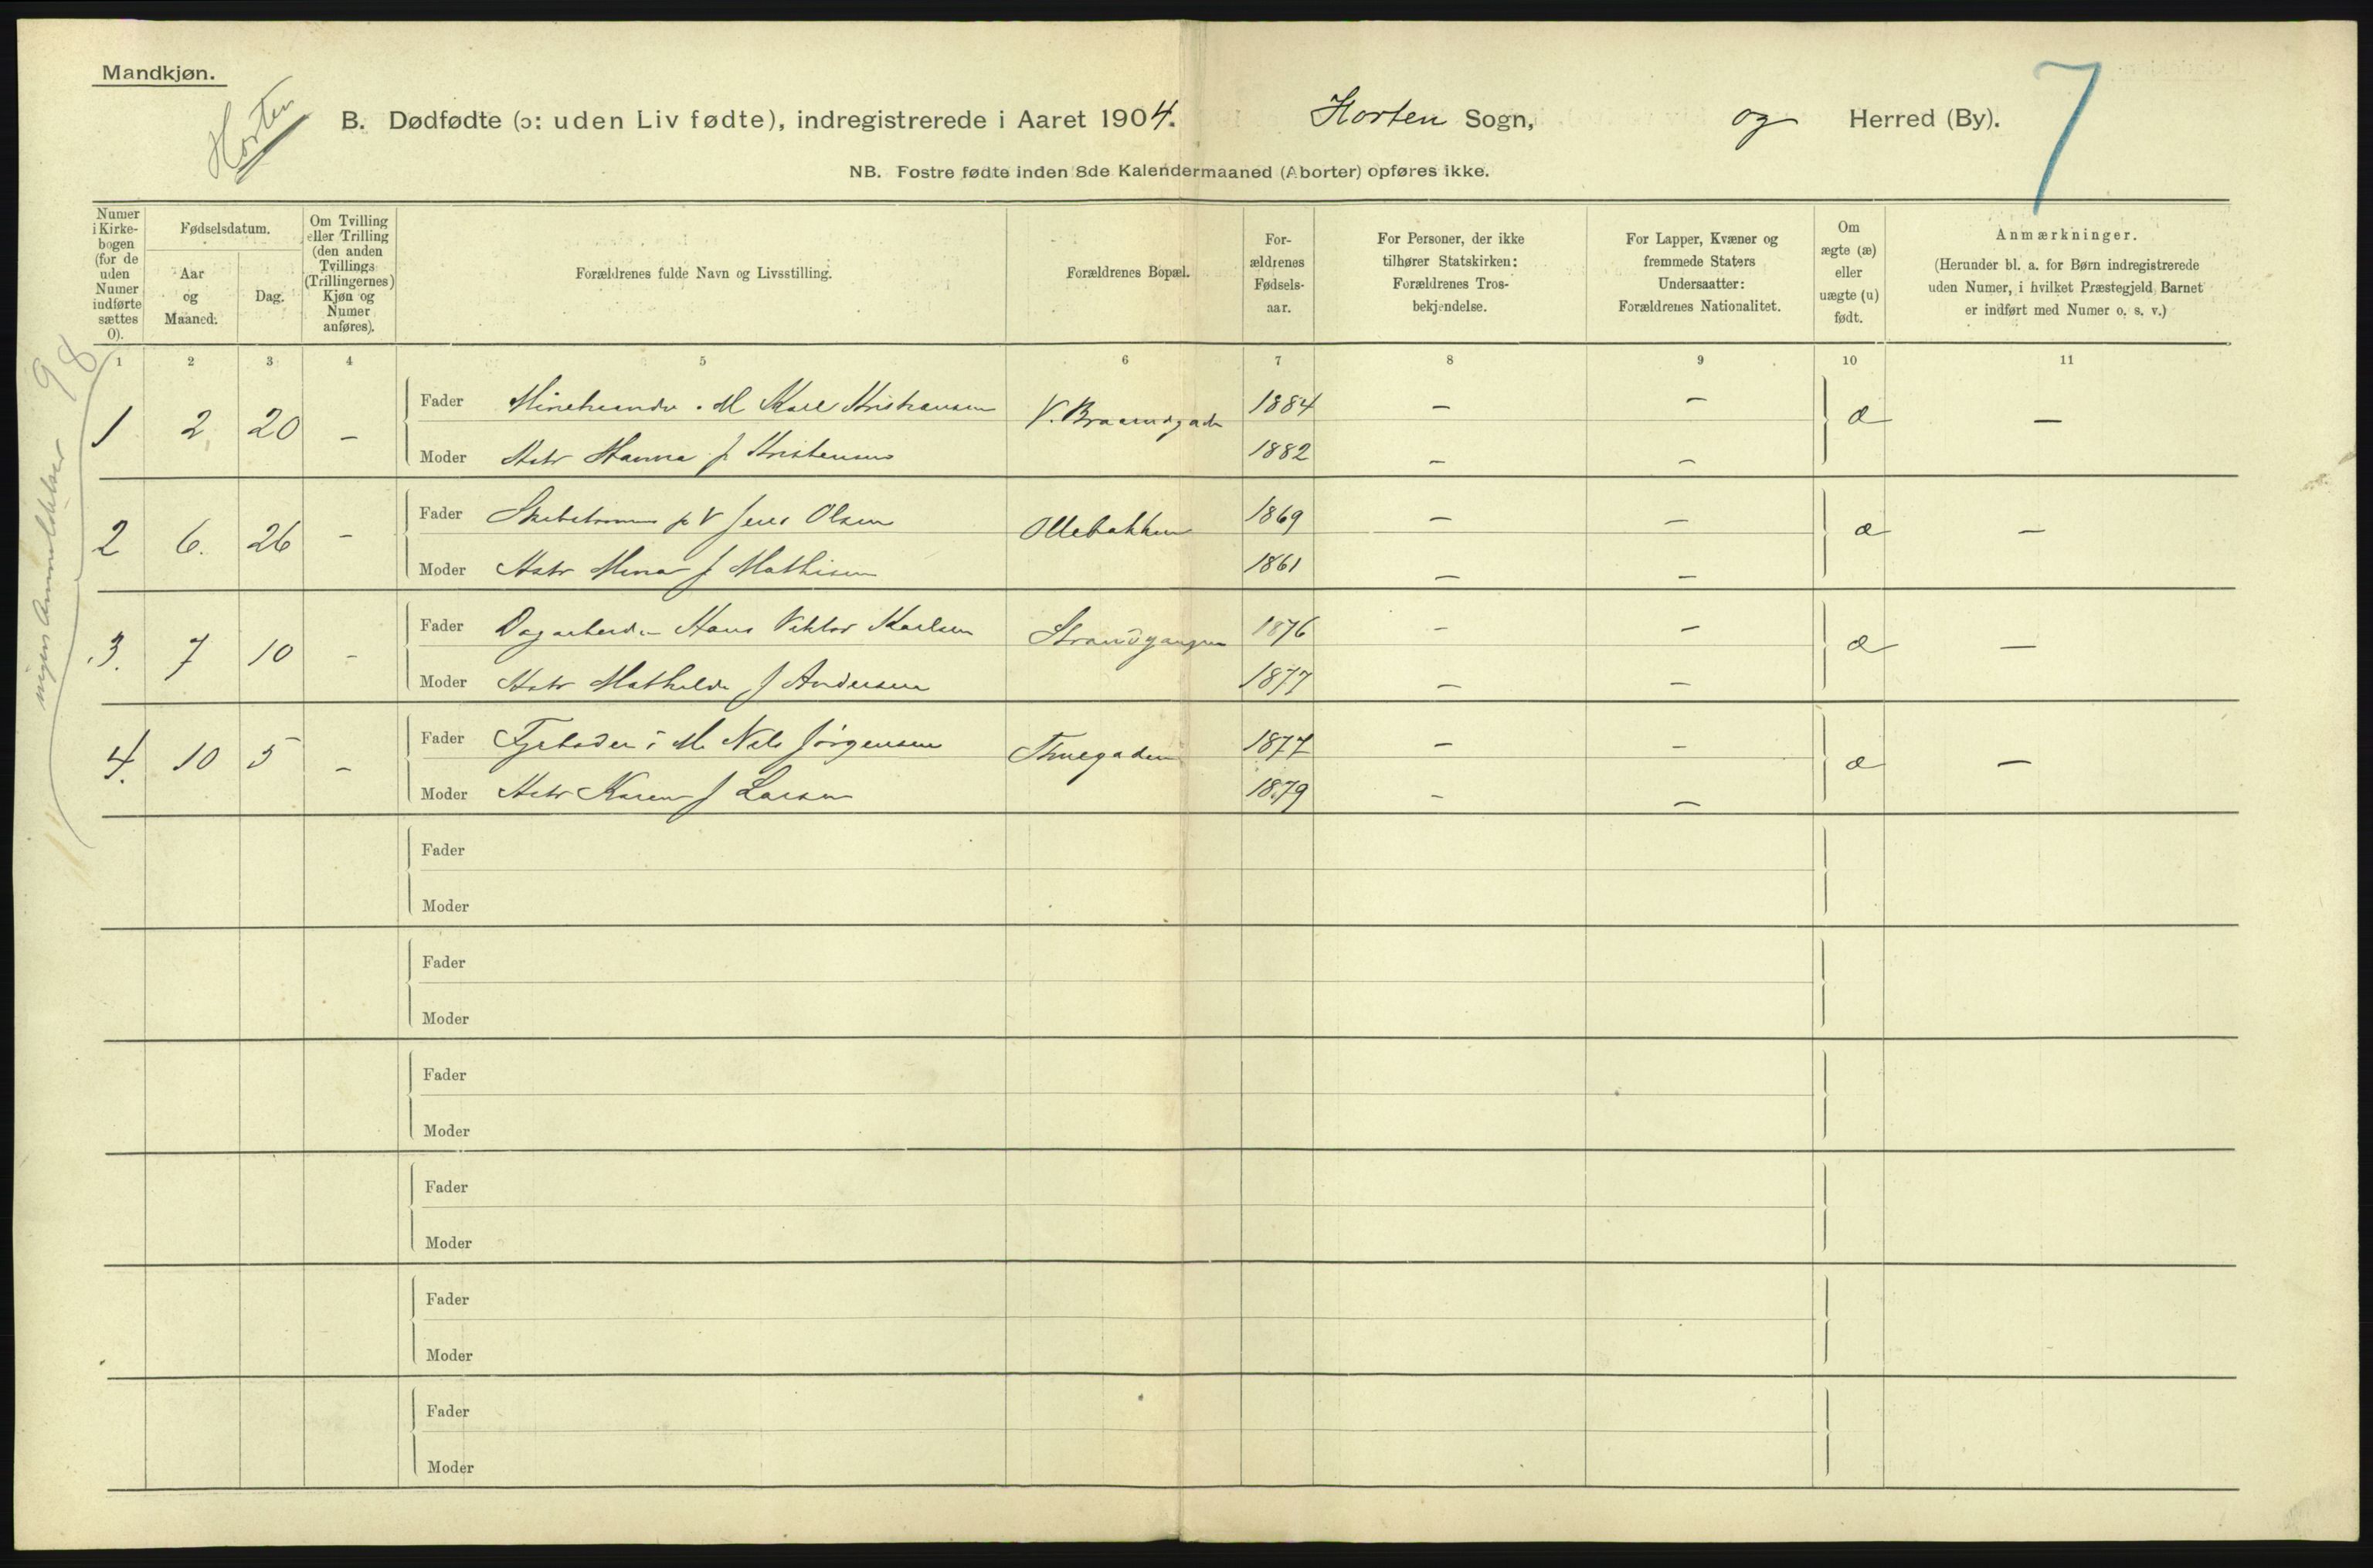 Mandkjøn.
Horten
B. Dødfødte (ɔ: uden Liv fødte), indregistrerede i Aaret 1904. Horten Sogn, og Herred (By).
7
NB. Fostre fødte inden 8de Kalendermaaned (Aborter) opføres ikke.
Numer i Kirkebogen (for de uden Numer indførte sættes 0).
Fødselsdatum.
Aar og Maaned.
Dag.
Om Tvilling eller Trilling (den anden Tvillings (Trillingernes) Kjøn og Numer anføres).
Forældrenes fulde Navn og Livsstilling.
Forældrenes Bopæl.
Forældrenes Fødselsaar.
For Personer, der ikke tilhører Statskirken: Forældrenes Trosbekjendelse.
For Lapper, Kvæner og fremmede Staters Undersaatter: Forældrenes Nationalitet.
Om ægte (æ) eller uægte (u) født.
Anmærkninger.
(Herunder bl. a. for Børn indregistrerede uden Numer, i hvilket Præstegjeld Barnet er indført med Numer o. s. v.)
1 2 3 4 5 6 7 8 9 10 11
98
ingen Anmeldelser
1 2 20 – Fader M Karl Kristiansen V. Braarudgade 1884 – – æ –
Moder Hstr Hanna f Kristensen 1882 – –
2 6. 26 – Fader Jens Olsen Ollebakken 1869 – – æ –
Moder Hstr Mina f Mathisen 1861 – –
3. 7 10 – Fader Dagarbeider Hans Viktor Karlsen Strandgangen 1876 – – æ –
Moder Hstr Mathilde f Andersen 1877 – –
4. 10 5 – Fader Fyrbøder i M. Nils Jörgensen Thuegaden 1877 – – æ –
Moder Hstr Karen f Larsen 1879 – –
Fader
Moder
Fader
Moder
Fader
Moder
Fader
Moder
Fader
Moder
Fader
Moder